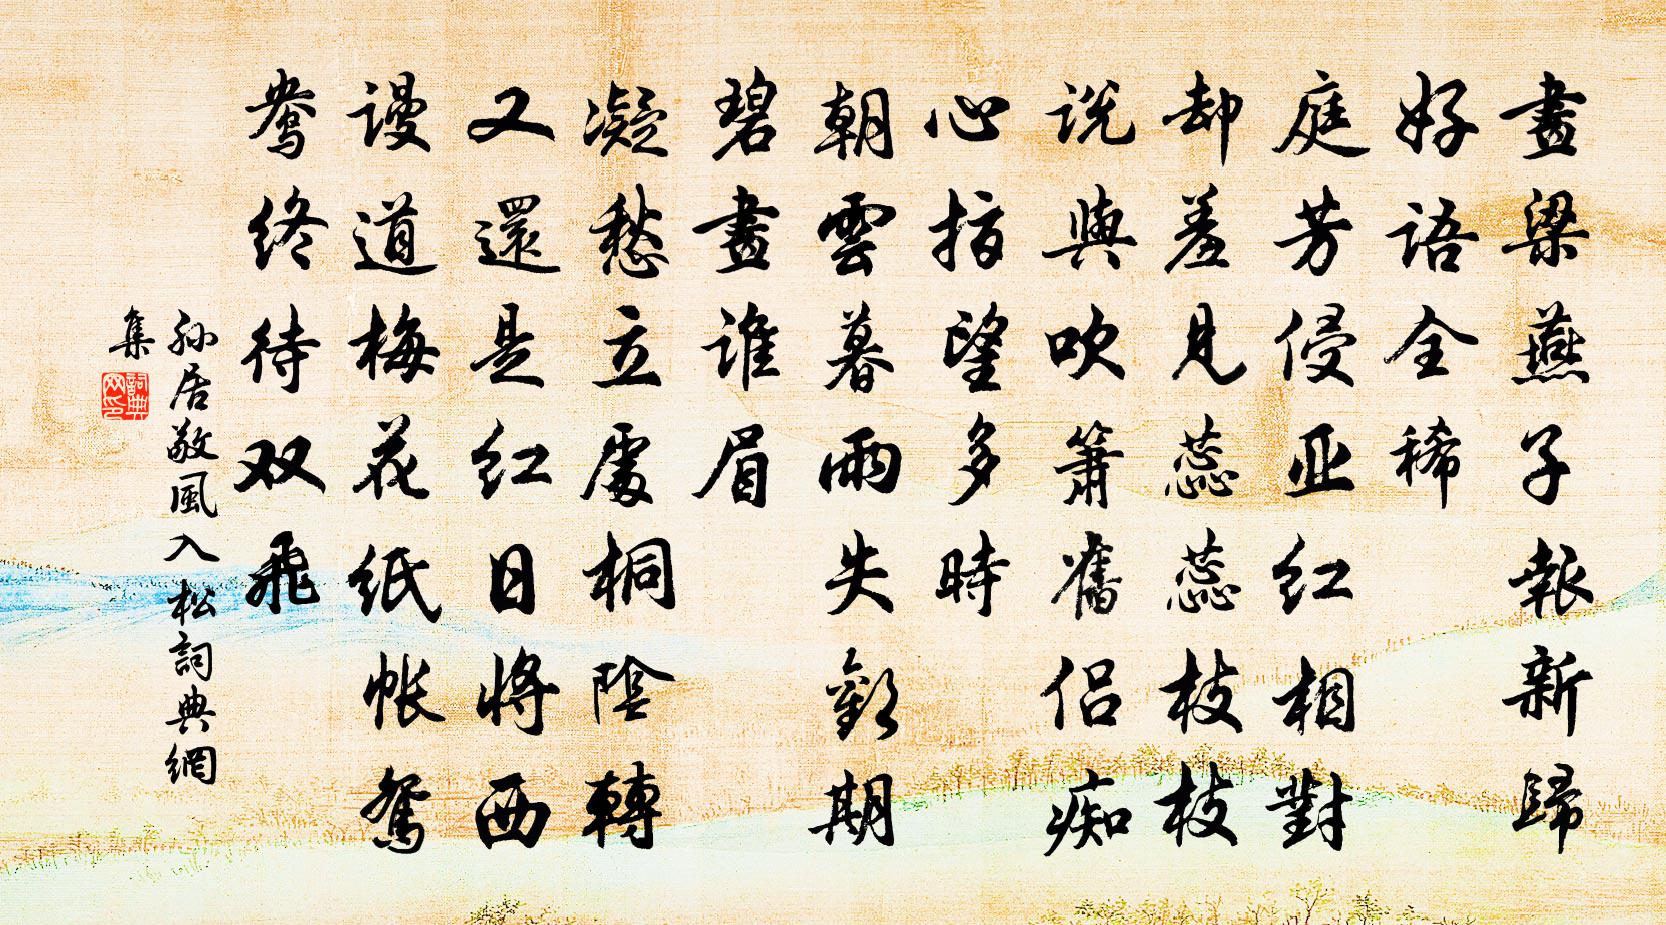 畫梁燕子報新歸
好語全稀
庭芳侵亚红相對
却羞見蕊蕊枝枝
説與吹簫舊侣痴
心指望多時
朝雲暮雨失歡期
碧畫誰眉
凝愁立處桐陰轉
又還是红日将西
谩道梅花纸帐鴛
鴦终待双飛
孙居敬風入松詞典網
集
詞典网印